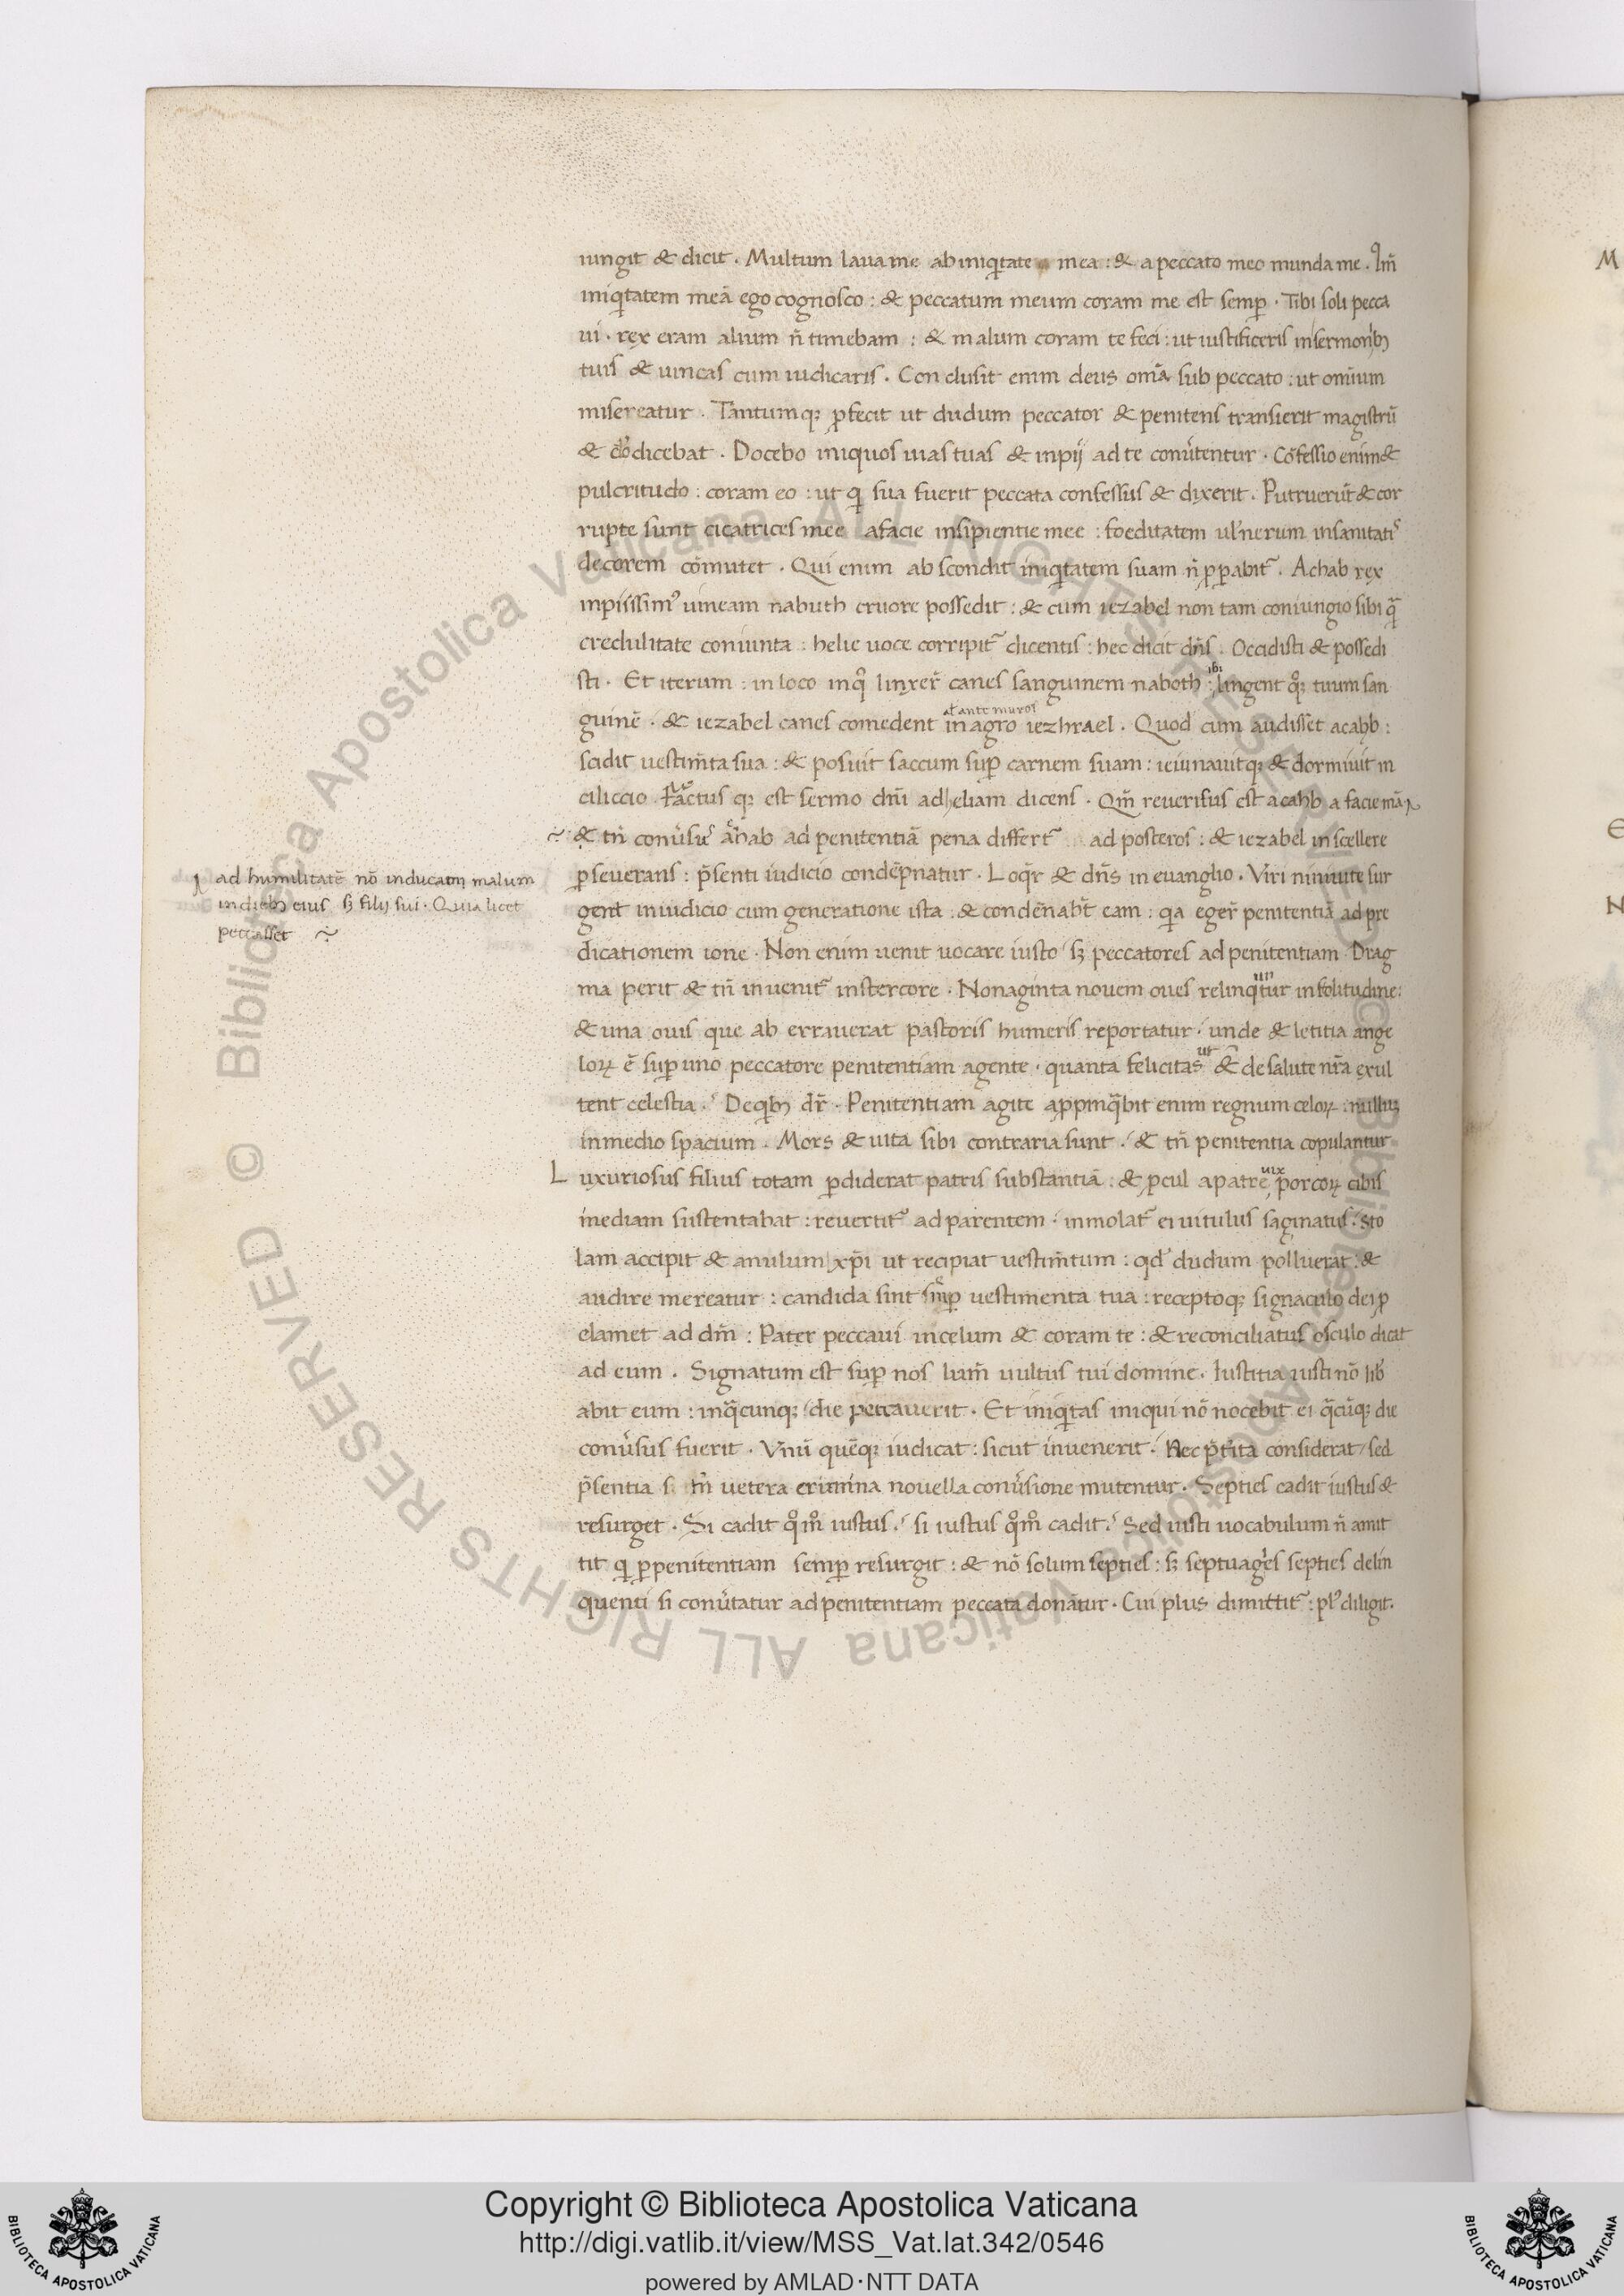 iungit & dicit . Multum laua me ab iniq̃tate mea : & a peccato meo munda me . Qm̄
iniq̃tatem meā ego cognosco : & peccatum meum coram me est semꝑ . Tibi soli pecca
ui . rex eram alium n̄ timebam : & malum coram te feci : ut iustificeris in sermonibꝫ
tuis & uincas cum iudicaris . Conclusit enim deus omīa sub peccato : ut omīum
misereatur . Tantumqꝫ ꝓfecit ut dudum peccator & penitens transierit magistrū
& dicebat . Docebo iniquos uias tuas & inpij ad te conũtentur . Cōfessio enim &
pulcritudo : coram eo : ut qi sua fuerit peccata confessus & dixerit . Putruerūt & cor
rupte sunt cicatrices mee a facie insipientie mee : foeditatem ul'nerum in sanitatis
decorem cōmutet . Qui enim abscondit iniq̃tatem suam n̄ ꝓsꝑabit᷑ . Achab rex
inpiissimꝰ uineam nabuth cruore possedit : & cum iezabel non tam coniungio sibi q̃
credulitate coniunta : helie uoce corripit᷑ dicentis : hec dicit dn̄s . Occidisti & possedi
sti . Et iterum : in loco in qͦ linxer̄ canes sanguinem naboth : ibi lingent qͦqꝫ tuum san
guinē . & iezabel canes comedent in agro iezhrael . Quod cum audisset acahb :
al' ante muros
scidit uestim̄ta sua : & posuit saccum suꝑ carnem suam : ieiunauitqꝫ & dormiuit in
ciliccio . Factus qꝫ est sermo dn̄i ad heliam dicens . Qm̄ reuersus est acahb a facie mā
& tn̄ conũsus ahab ad penitentiā pena differt᷑ ad posteros : & iezabel in scellere
ꝑseuerans : p̄senti iudicio condēpnatur . Loqr̄ & dn̄s in euanglio . Viri niniuite sur
gent in iudicio cum generatione ista : & condēnabt̄ eam : qa eger̄ penitentiā ad pre
dicationem ione . Non enim uenit uocare iusto sꝫ peccatores ad penitentiam . Drag
ma perit & tn̄ inuenit᷑ in stercore . Nonaginta nouem oues relinquntur in solitudine :
& una ouis que aberrauerat pastoris humeris reportatur . unde & letitia ange
loꝝ ē suꝑ uno peccatore penitentiam agente . quanta felicitas ut & de salute nr̄a exul
tent celestia . De qibꝫ dr̄ . Penitentiam agite apꝓpinq̃bit enim regnum celoꝝ : nulluꝫ
in medio spacium . Mors & uita sibi contraria sunt . & tn̄ penitentia copulantur
Luxuriosus filius totam ꝑdiderat patris substantiā : & ꝓcul a patre uix porcoꝝ cibis
inediam sustentabat : reuertit᷑ ad parentem . inmolat᷑ ei uitulus saginatus . sto
lam accipit & anulum xp̄i ut recipiat uestim̄tum : qd' dudum polluerat : &
audire mereatur : candida sint semꝑ uestimenta tua : receptoqꝫ signaculo dei ꝓ
clamet ad dm̄ : Pater peccaui in celum & coram te : & reconciliatus osculo dicat
ad eum . Signatum est suꝑ nos lum̄ uultus tui domine . Iustitia iusti nō lib̄
abit eum : in q̃cunqꝫ die peccauerit . Et iniq̃tas iniqui nō nocebit ei q̃cūqꝫ die
conũsus fuerit . Vnū quēqꝫ iudicat : sicut inuenerit . Nec p̄terita considerat / sed
p̄sentia si tn̄ uetera crimina nouella conũsione mutentur . Septies cadit iustus &
resurget . Si cadit qͦmͦ iustus . si iustus qͦmͦ cadit . Sed iusti uocabulum n̄ amit
tit qi ꝑ penitentiam semꝑ resurgit : & nō solum septies : sꝫ septuages septies delin
quenti si conũtatur ad penitentiam peccata donātur . Cui plus dimittit᷑ : plꝰ diligit .
ad humilitatē nō inducam malum
in diebꝫ eius sꝫ filij sui . Quia licet
peccasset
M
E
N
© Biblioteca Apostolica Vaticana ALL RIGHTS RESERVED © Biblioteca Apostolica Vaticana ALL RIGHTS RESERVED
Copyright © Biblioteca Apostolica Vaticana
http://digi.vatlib.it/view/MSS_Vat.lat.342/0546
powered by AMLAD·NTT DATA
BIBLIOTECA APOSTOLICA VATICANA
BIBLIOTECA APOSTOLICA VATICANA